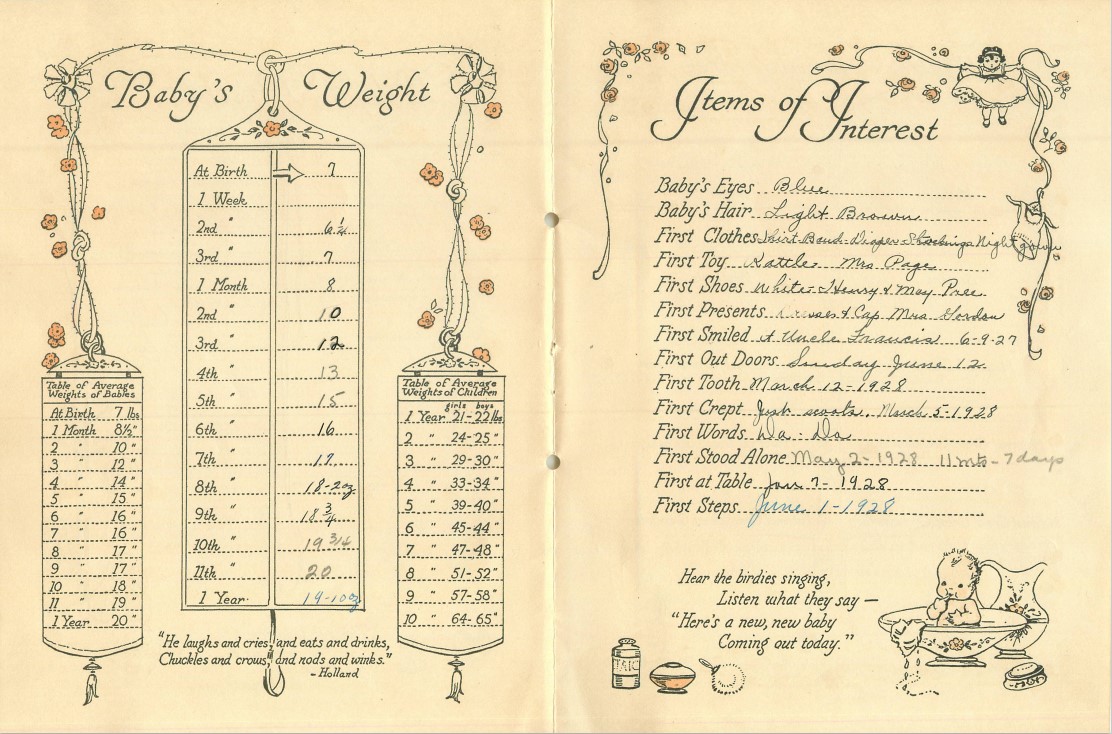 Baby's Weight
At Birth 7
1 Week
2nd " 6 1/2
3rd " 7
1 Month 8
2nd " 10
3rd " 12
4th " 13
5th " 15
6th " 16
7th " 17
8th " 18-2oz
9th " 18 3/4
10th " 19 3/4
11th " 20
1 Year 19-10oz
Table of Average
Weights of Babies
At Birth 7 lbs
1 Month 8½"
2 " 10"
3 " 12"
4 " 14"
5 " 15"
6 " 16"
7 " 16"
8 " 17"
9 " 17"
10 " 18"
11 " 19"
1 Year 20"
Table of Average
Weights of Children
girls boys
1 Year 21-22 lbs
2 " 24-25"
3 " 29-30"
4 " 33-34"
5 " 39-40"
6 " 45-44"
7 " 47-48"
8 " 51-52"
9 " 57-58"
10 " 64-65"
"He laughs and cries, and eats and drinks,
Chuckles and crows, and nods and winks."
- Holland
Items of Interest
Baby's Eyes Blue
Baby's Hair Light Brown
First Clothes Shirt-Band-Diaper-Stockings Nightgown
First Toy Rattle Mrs Page
First Shoes White-Henry & May Pree
First Presents & Cap Mrs Gordon
First Smiled at Uncle Francis 6-9-27
First Out Doors Sunday June 12
First Tooth March 12-1928
First Crept Just scoots. March 5-1928
First Words Da-Da
First Stood Alone May 2-1928 11 mts-7 days
First at Table Jan 7-1928
First Steps June 1-1928
Hear the birdies singing,
Listen what they say —
"Here's a new, new baby
Coming out today."
TALC